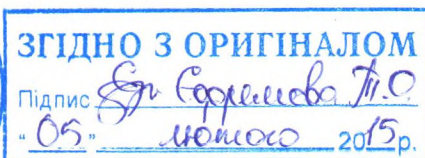 ЗГІДНО З ОРИГІНАЛОМ
Підпис Єфремова Т.О.
"05" лютого 2015р.